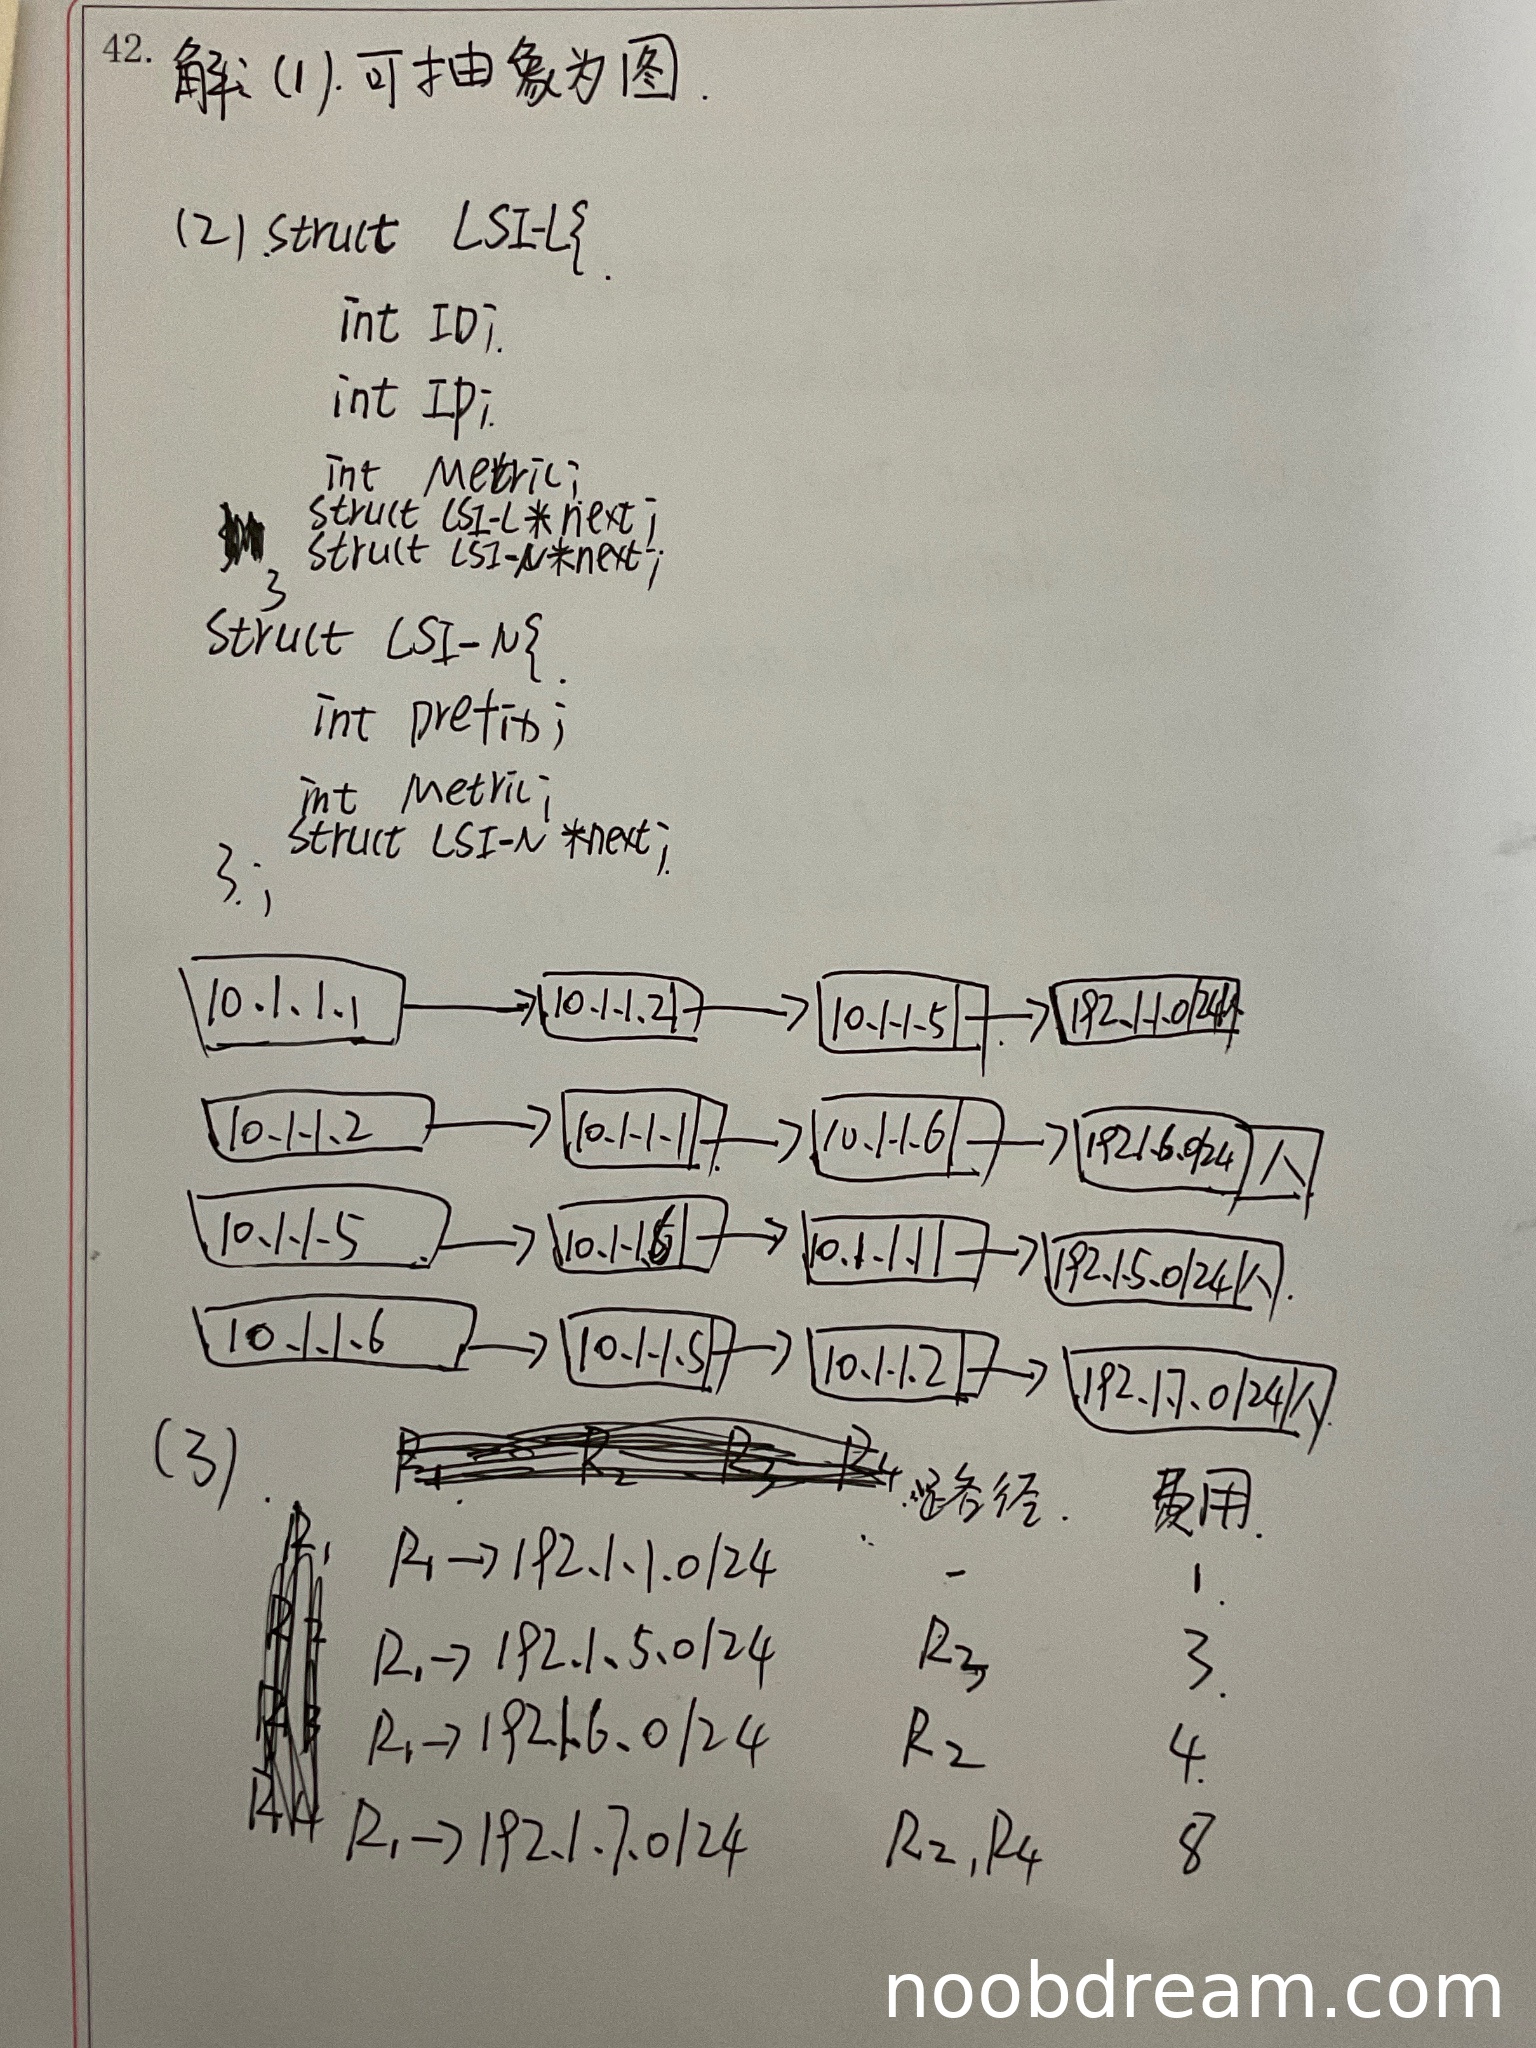 42. 解:(1).可抽象为图.
(2).struct LSI-L{
int ID;
int IP;
int Metric;
struct LSI-L*next;
struct LSI-N*next;
}
Struct LSI-N{
int prefix;
int Metric;
struct LSI-N *next;
};
10.1.1.1 10.1.1.2 10.1.1.5 192.1.1.0/24 ∧
10.1.1.2 10.1.1.1 10.1.1.6 192.1.6.0/24 ∧
10.1.1.5 10.1.1.6 10.1.1.1 192.1.5.0/24 ∧
10.1.1.6 10.1.1.5 10.1.1.2 192.1.7.0/24 ∧
(3). R1 R2 R3 R4 路径. 费用.
R1→192.1.1.0/24 - 1.
R1→192.1.5.0/24 R3 3.
R1→192.1.6.0/24 R2 4.
R1→192.1.7.0/24 R2,R4 8
noobdream.com